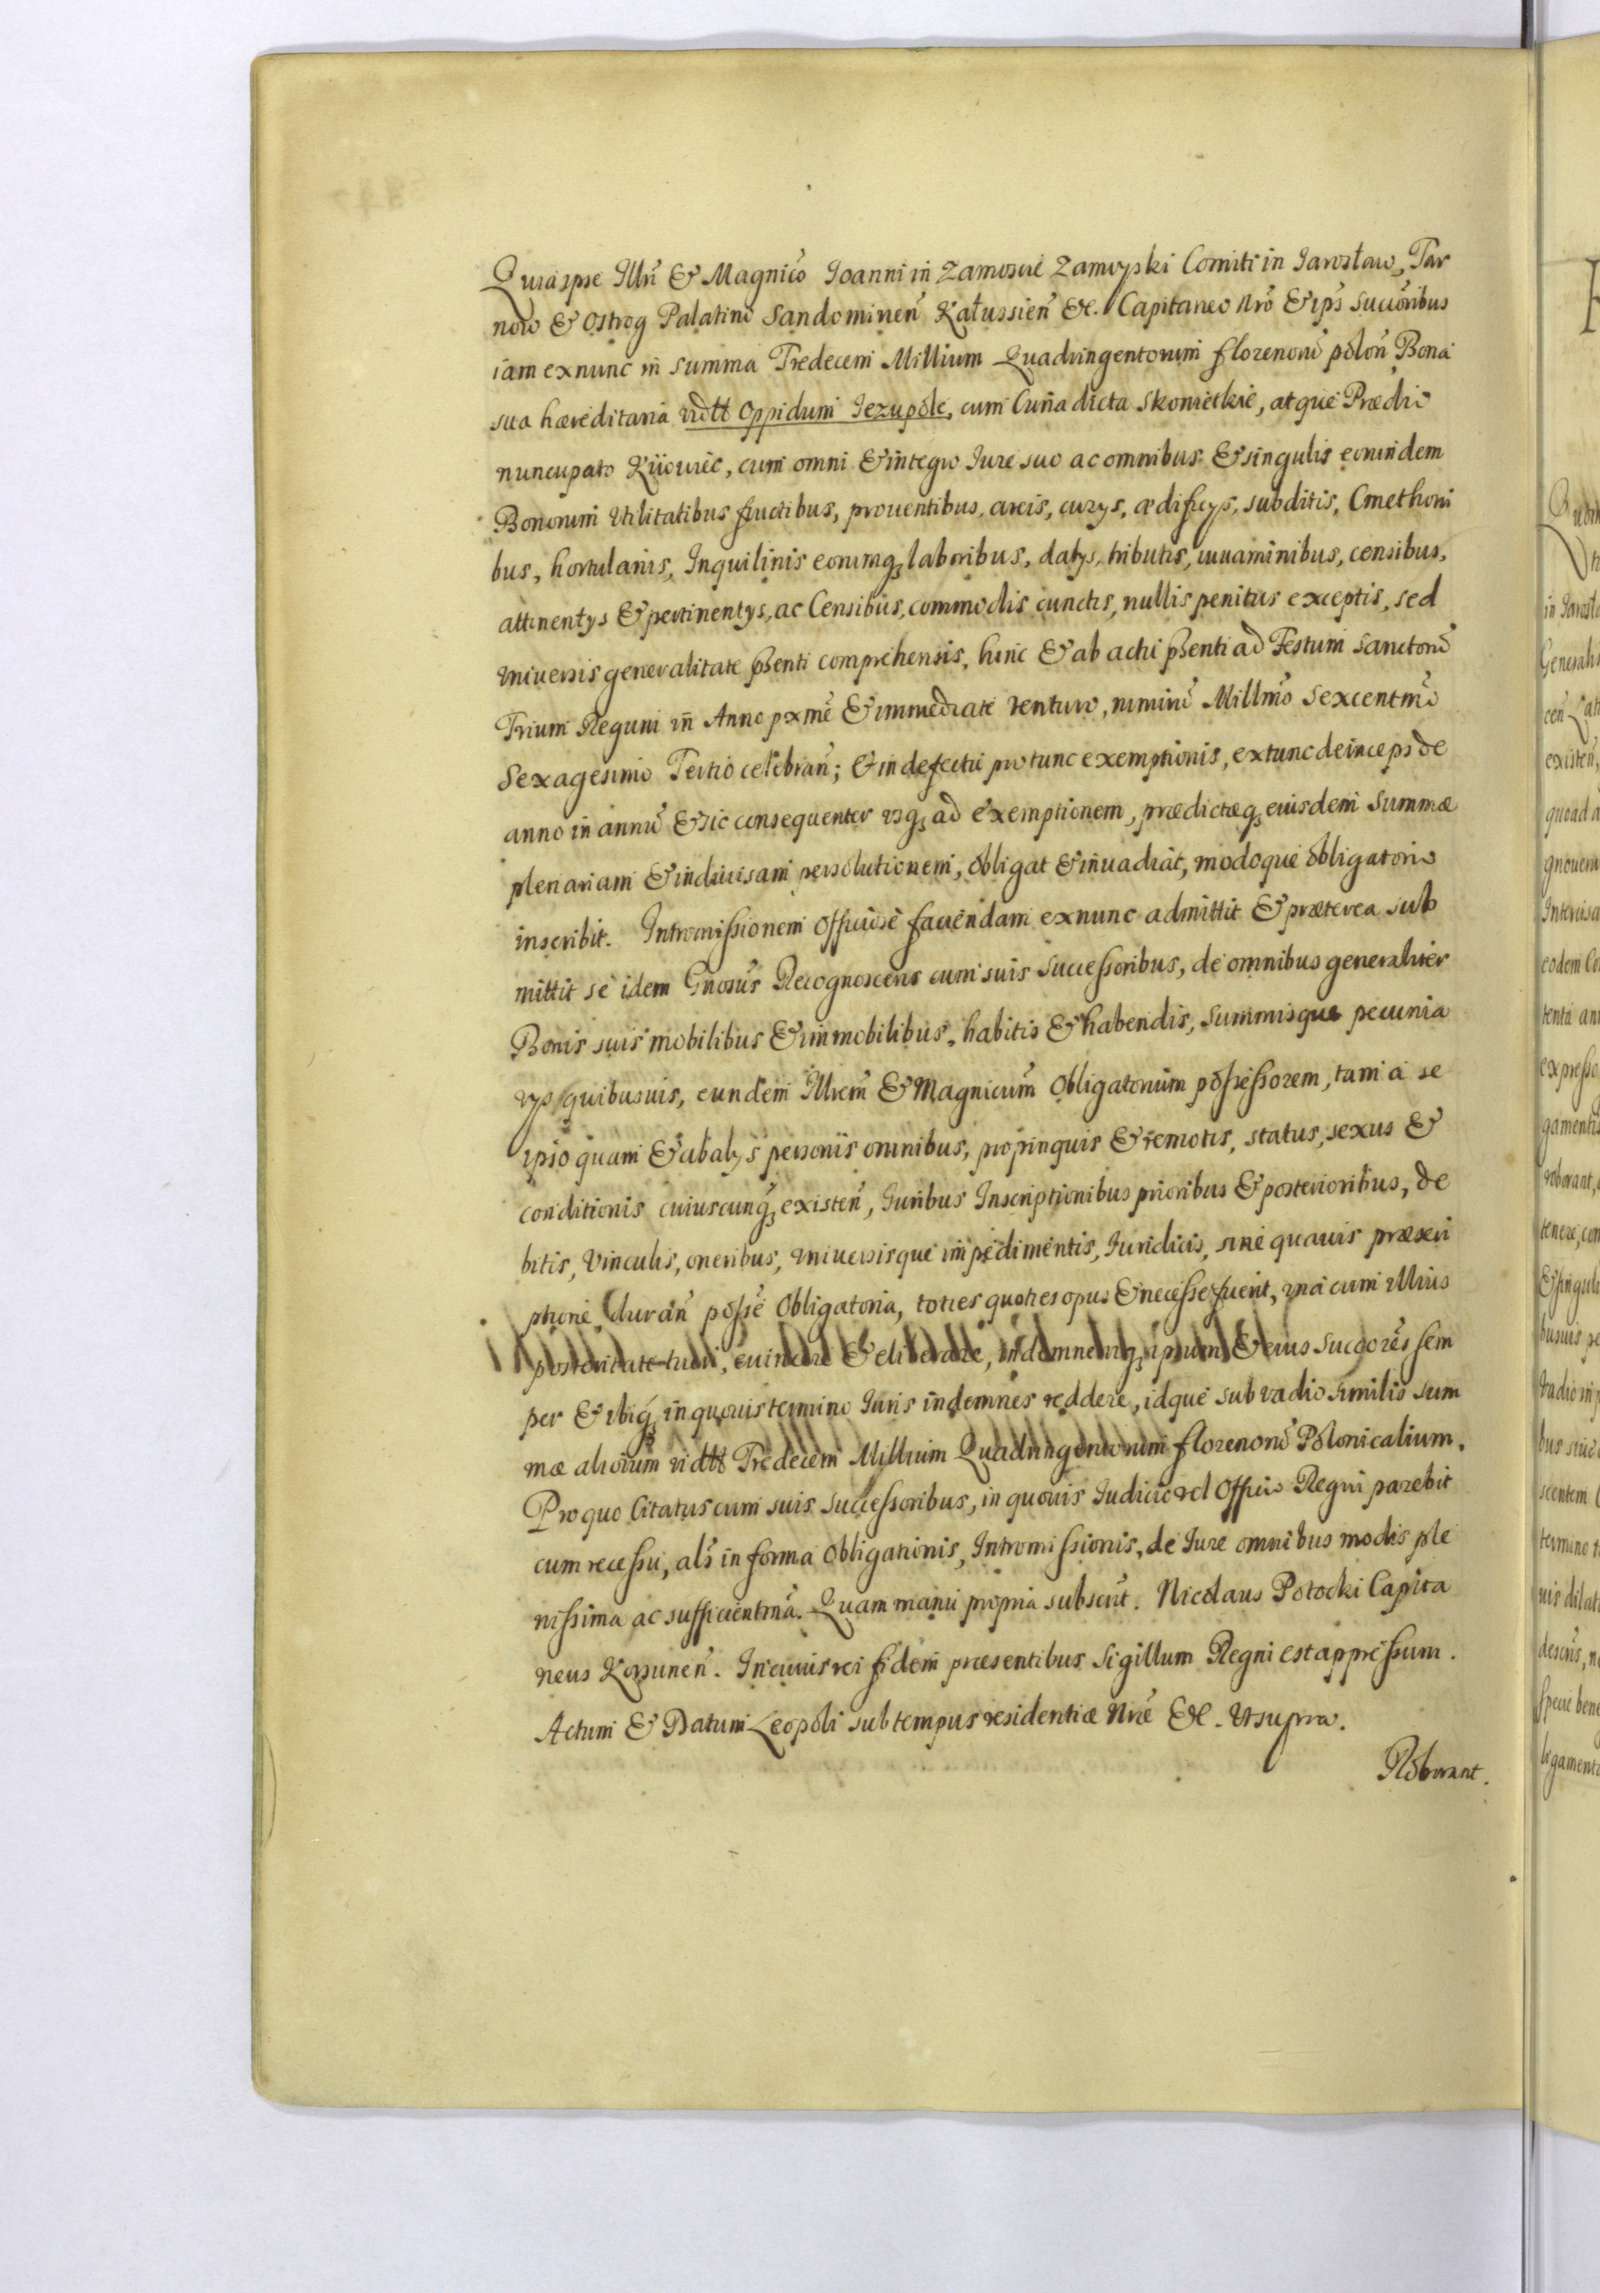 Quia ipse Illri & Magnico Joanni in Zamoscie Zamoyski Comiti in Jarosław, Tar
now & Ostrog Palatino Sandominen Kałussien &c. Capitaneo Nro & ips succoribus
iam exnunc in summa Tredecem Millium Quadringentorum florenorũ polon Bona
sua hæreditaria vidtt Oppidum Jezupole, cum Curia dicta Skomietkie, atque Prædio
nuncupato Kiiowiec, cum omni & integro Jure suo ac omnibus & singulis eorundem
Bonorum Utilitatibus fructibus, prouentibus, areis, curys, ædificys, subditis, Cmethoni
bus, hortulanis, Inquilinis eorumq laboribus, datys, tributis, iuuaminibus, censibus,
attinentys & pertinentys, ac Censibus, commodis cunctis, nullis penitus exceptis, sed
vniuersis generalitate pñsenti comprehensis, hinc & ab actu pñsenti ad Festum Sanctorũ
Trium Regum in Anno pxme & immediate venturo, nimirũ Millmo Sexcentmo
Sexagesimo Tertio celebran; & in defectu pro tunc exemptionis, extunc deinceps de
anno in annũ & sic consequenter vsq ad exemptionem, prædictæq eiusdem Summæ
plenariam & indiuisam persolutionem, obligat & inuadiat, modoque obligatorio
inscribit. Intromissionem Officiose faciendam exnunc admittit & præterea sub
mittit se idem Gnosus Recognoscens cum suis Successoribus, de omnibus generaliter
Bonis suis mobilibus & immobilibus, habitis & habendis, Summisque pecunia
rys quibusuis, eundem Illrem & Magnicum Obligatorium possessorem, tam a se
ipso quam & ab alys personis omnibus, propinquis & remotis, status, sexus &
conditionis cuiuscunq existen, Juribus Inscriptionibus prioribus & posterioribus, de
bitis, Vinculis, oneribus, vniuersisque impedimentis, Juridicis, sine quauis præscri
ptione, duran posse Obligatoria, toties quoties opus & necesse fuerit, vna cum illius
posteritate tueri, euincere & eliberare, indemnemq ipsum & eius Succores sem
per & vbiq in quouis termino Juris indemnes reddere, idque sub vadio similis sum
mæ aliorum vidtt Tredecem Millium Quadringentorum florenorũ Polonicalium.
Pro quo Citatus cum suis successoribus, in quouis Judicio vel Officio Regni parebit
cum recessu, als in forma Obligationis, Intromissionis, de Jure omnibus modis ple
nissima ac sufficientma. Quam manu propria subscrit. Nicolaus Potocki Capita
neus Korsunen. In cuius rei fidem præsentibus Sigillum Regni est appressum.
Actum & Datum Leopoli sub tempus residentiæ Nræ &c. Vt supra.
Roborant.